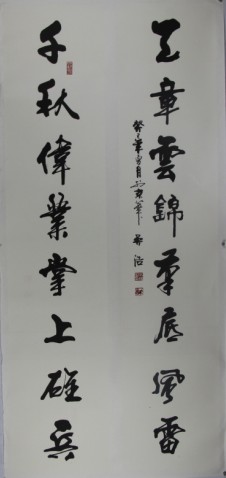 天章雲錦筆底風雷
千秋偉業掌上雄兵